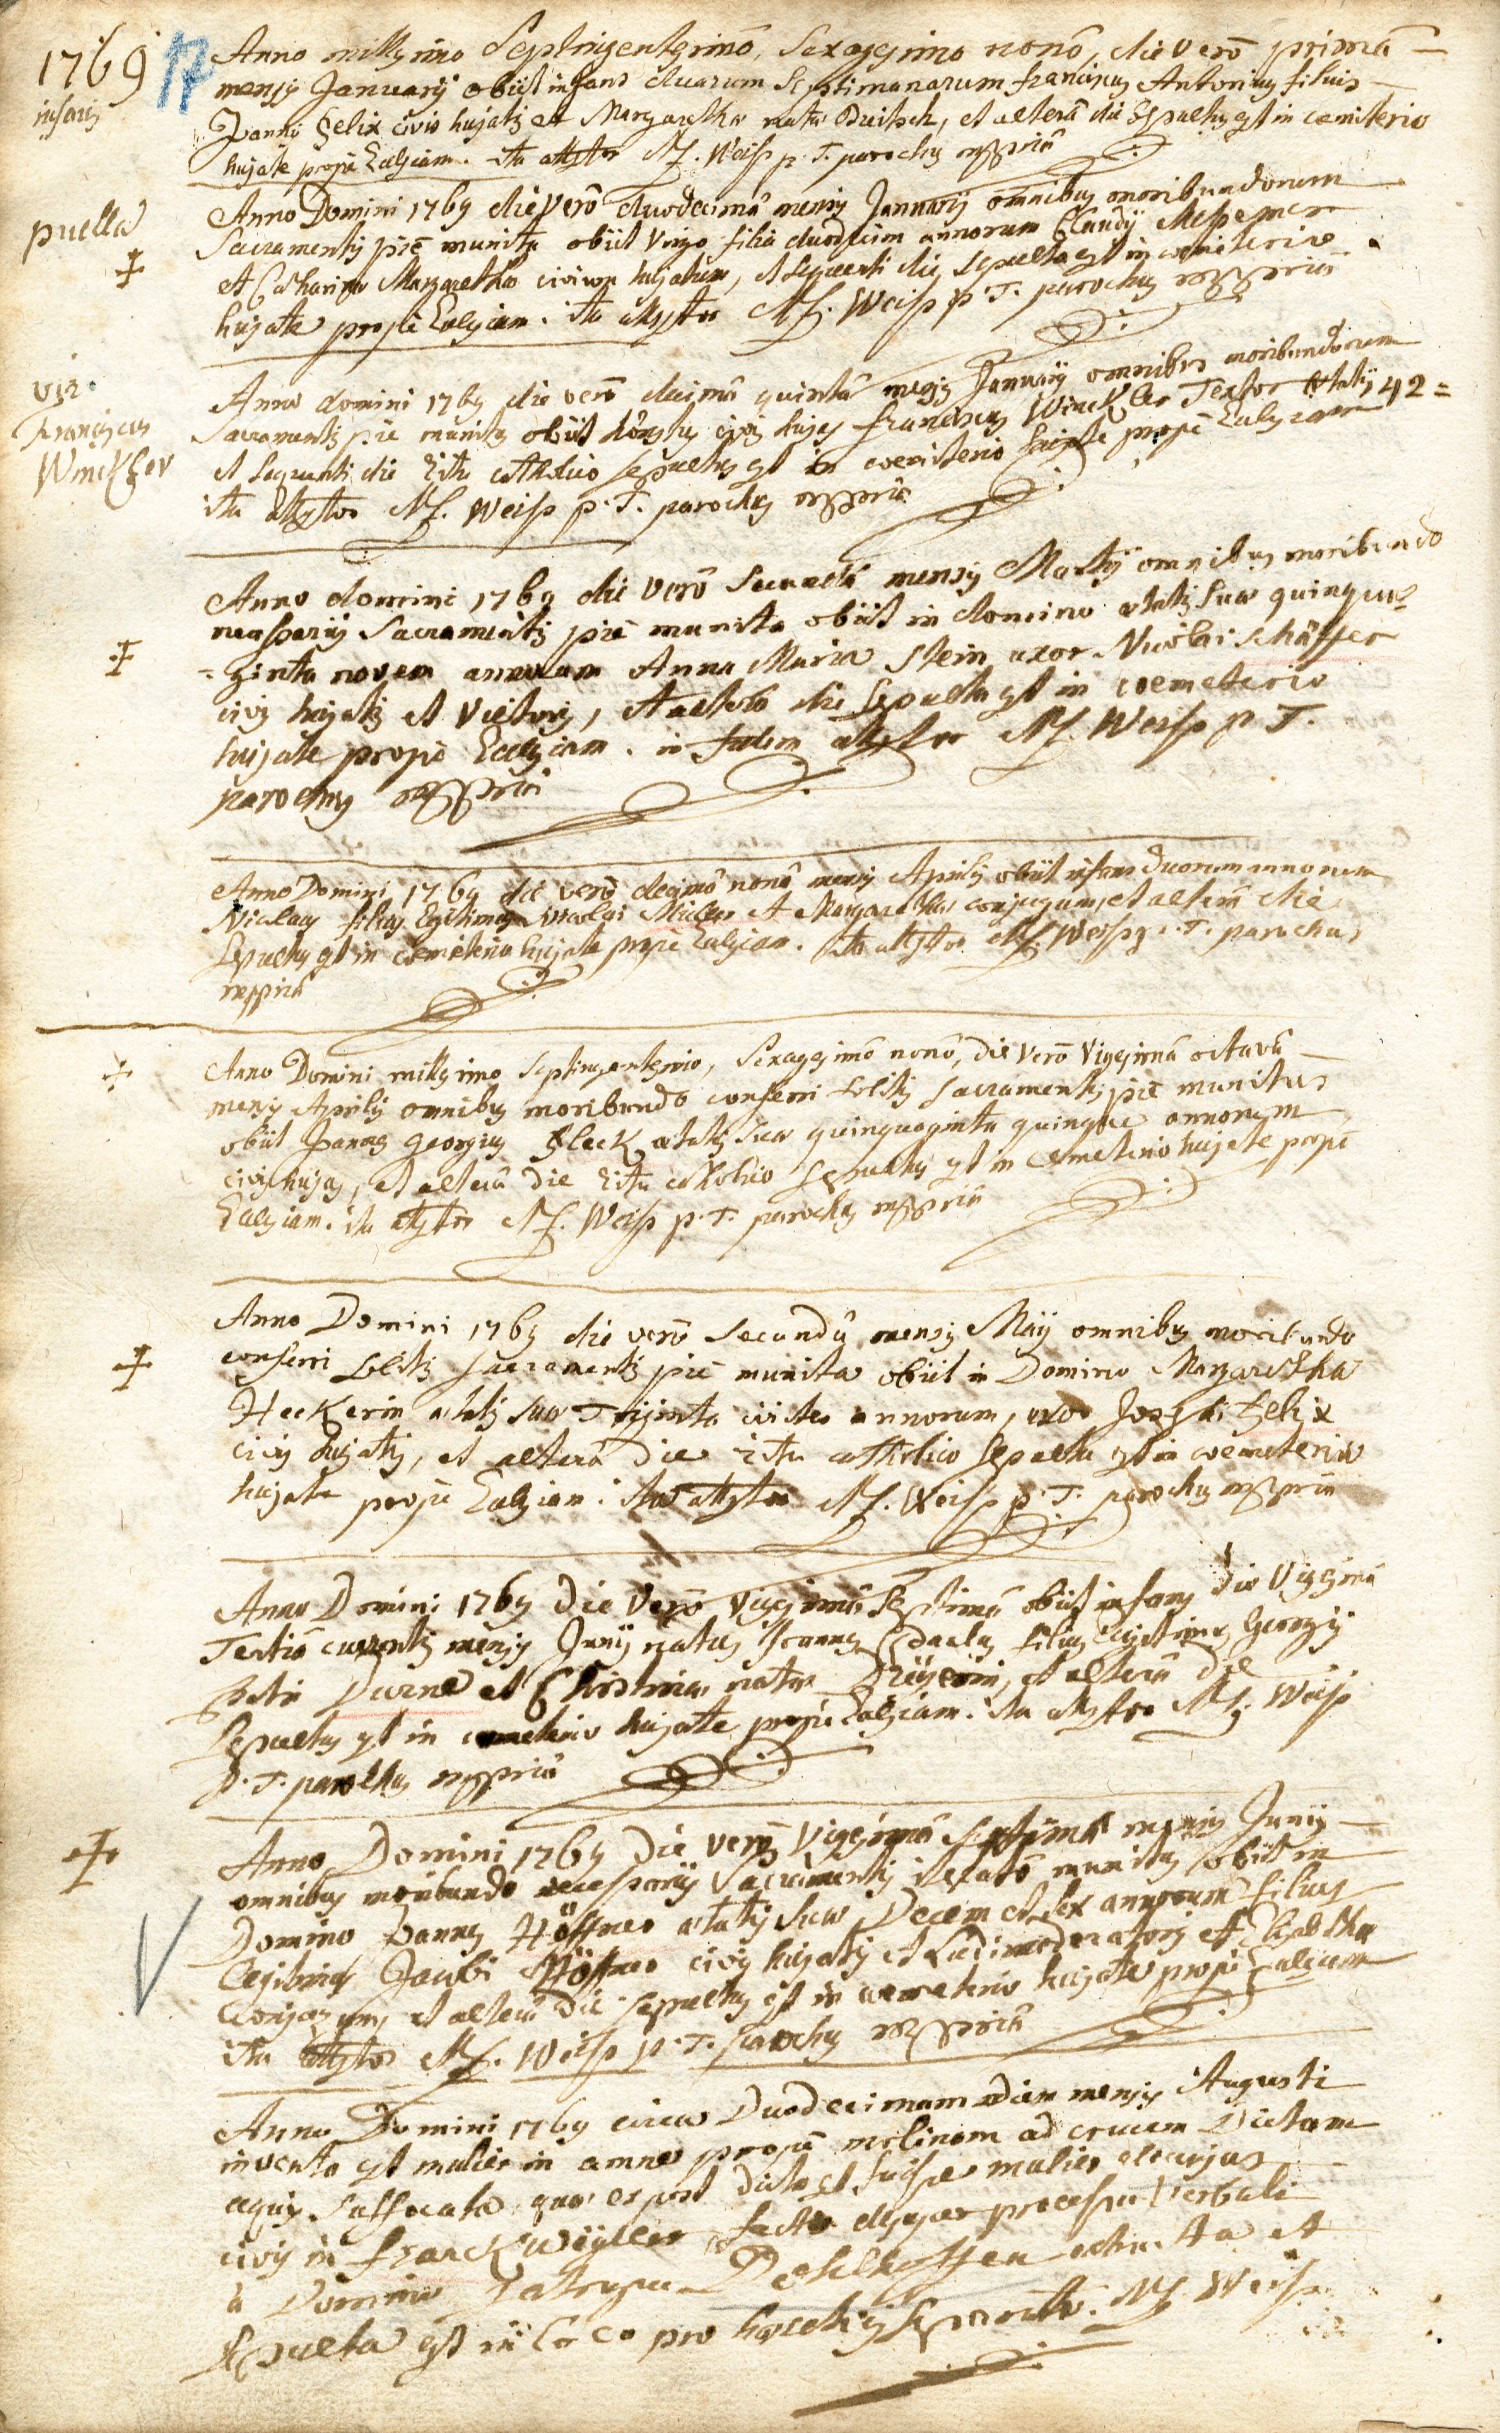 1769
17
infans
Anno millesimo Septingentesimô, Sexagesimo nonô, die verô primâ
mensis Januarij obiit infans duarum Septimanarum franciscus Antonius filius
Joannis Felix civis hujatis et Margaretha nata, et alterâ die Sepultus est in cemiterio
hujate propè Ecclesiam. ita attestor M. Weiss p. T. parochus mppriâ
puella
Anno Domini 1769 die verô duodecimâ mensis Januarij omnibus moribundorum
Sacramentis piè munita obiit virgo filia duodecim annorum Claudij
et Catharina Margaretha civium hujatum, et sequenti die sepulta est in coemeterio
hujate propè Ecclesiam. ita attestor M. Weiss p. T. parochus mppriâ
vir.
Franciscus
Winckler
Anno domini 1769 die verô decimâ quintâ mensis Januarij omnibus moribundorum
Sacramentis piè munitus obiit honestus civis hujas franciscus Winckler Textor aetatis 42 =
et sequenti die ritu catholico sepultus est in coemeterio hujate propè Ecclesiam
ita attestor M. Weiss p. T. parochus mppriâ
Anno domini 1769 die verô Secundâ mensis Martij omnibus moribundo
necessarijs Sacramentis piè munita obiit in domino aetatis suae quinqua=
=ginta novem annorum Anna Maria Stein uxor Nicolai Schäffer
civis hujatis et, et alterâ die Sepulta est in coemeterio
hujate propè Ecclesiam. in fidem attestor M. Weiss p. T.
parochus mppriâ
Anno Domini 1769 die verô decimâ nonâ mensis Aprilis obiit infans duorum annorum
Nicolaus filius legitimus nicolai Müller et Margaretha conjugum, et alterâ die
Sepultus est in coemeterio hujate propè Ecclesiam. ita attestor M. Weiss p. T. parochus
mppriâ
Anno Domini millesimo Septingentesimo, Sexagesimô nonô, die verô vigesimâ octavâ
mensis Aprilis omnibus moribundo conferri solitis sacramentis piè munitus
obiit Joannes Georgius Fleck aetatis suae quinquaginta quinque annorum
civis hujas, et alterâ die ritu catholico sepultus est in cemeterio hujate propè
Ecclesiam. ita attestor M. Weiss p. T. parochus mppriâ
Anno Domini 1769 die verô Secundâ mensis Maij omnibus moribundo
conferri solitis sacramentis piè munita obiit in Domino Margaretha
Heckerin aetatis suae Triginta annorum, uxor Josephi Felix
civis hujatis, et alterâ Die ritu catholico sepulta est in coemeterio
hujate propè Ecclesiam. ita attestor M. Weiss p. T. parochus mppriâ
Anno Domini 1769 Die Verô vigesimâ Septimâ obiit infans die vigesimâ
Tertiâ currentis mensis Junij natus Joannes filius legitimus Georgij
Petri Durne et Christina nata, et alterâ die
Sepultus est in cemeterio hujate propè Ecclesiam. ita attestor M. Weiss
p. T. parochus mppriâ
Anno Domini 1769 Die verô Vigesimâ Septimâ mensis Junij
omnibus moribundo necessarijs Sacramentis iteratô munitus obiit in
Domino Joannes Höffner aetatis suae Decem et sex annorum filius
legitimus Jacobi Höffner civis hujatis et Ludimoderatoris et
Conjugum, et alterâ die sepultus est in coemeterio hujate propè Ecclesiam
ita attestor M. Weiss p. T. parochus mppriâ
Anno Domini 1769 circa Duodecimam diem mensis Augusti
inventa est mulier in amne propè molinam ad crucem Dictam
aquis suffocata, quae ex post dicta est fuisse mulier alicujus
civis in franckweyler, factô desuper processu verbali
à Domino
Sepulta est in loco pro haereticis separato. M. Weiss